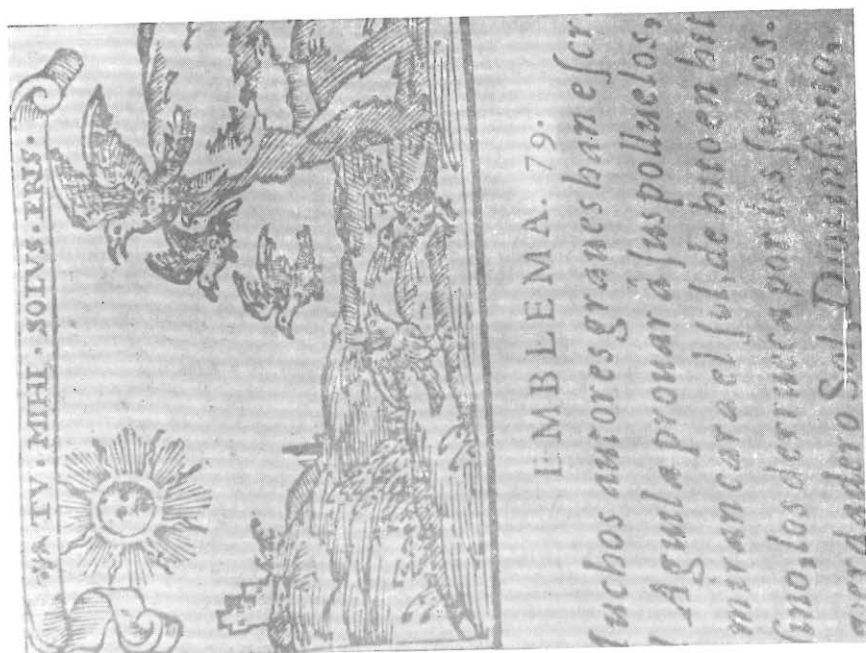 TV · MIHI · SOLVS · ERIS ·
EMBLEMA. 79.
uchos autores graues han eſcr
l Aguila prouar à ſus polluelos,
miran cara el ſol, de hito en hit
ſino, los derrueca por los ſuelos.
verdadero Sol, Dios infinito,